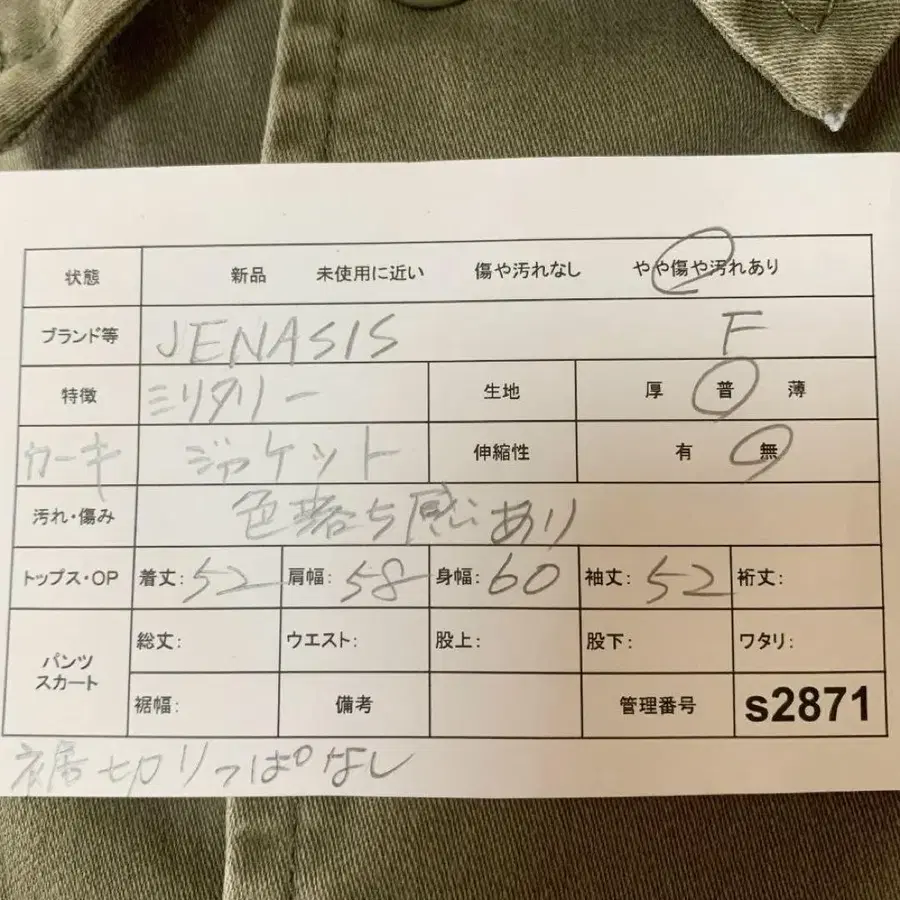 状態 新品 未使用に近い 傷や汚れなし やや傷や汚れあり
ブランド等 JENASIS F
特徴 ミリタリー 生地 厚 普 薄
カーキ ジャケット 伸縮性 有 無
汚れ・傷み 色落ち感あり
トップス・OP 着丈: 52 肩幅: 58 身幅: 60 袖丈: 52 裄丈:
パンツ スカート 総丈: ウエスト: 股上: 股下: ワタリ:
裾幅: 備考 管理番号 s2871
裾切りっぱなし